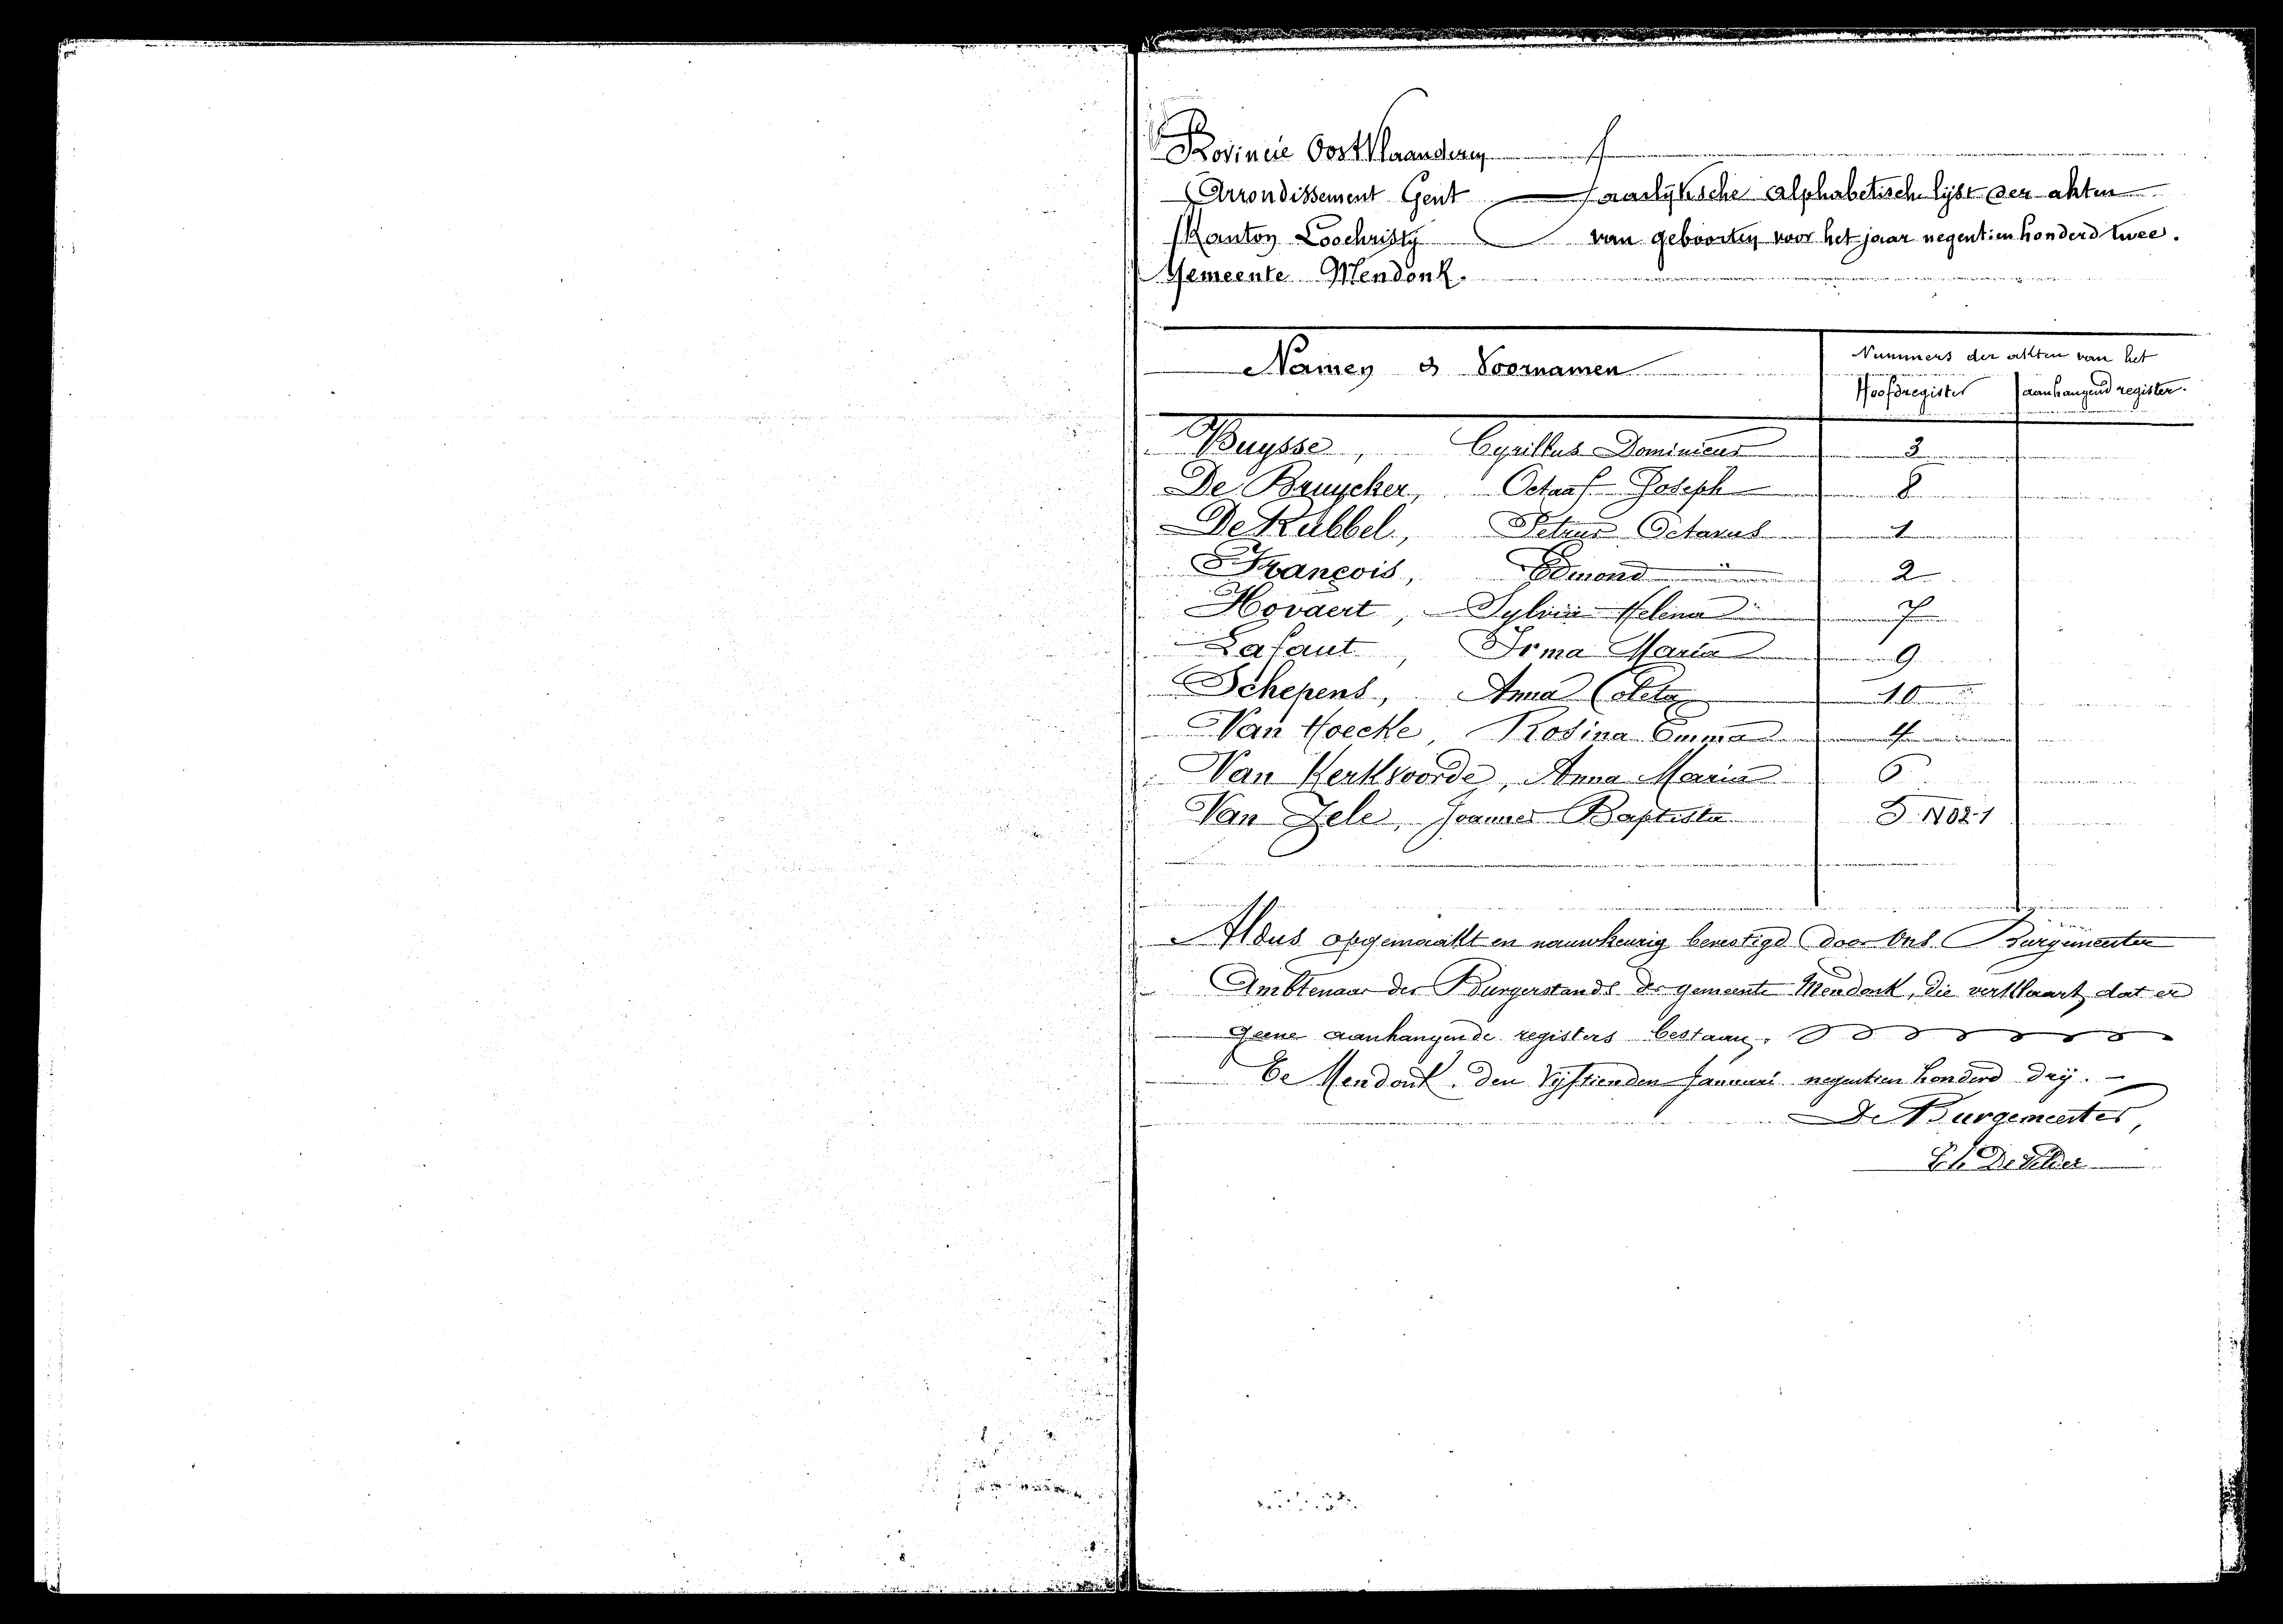 Provincie OostVlaanderen
Arrondissement Gent Jaarlijksche Alphabetisch lijst der akten
Kanton Loochristy van geboorten voor het jaar negentien honderd twee.
Gemeente Mendonk.
Namen & Voornamen
Nummers der akten van het
Hoofdregister aanhangend register.
Buysse, Cyrillus Dominicus 3
De Bruycker, Octaaf Joseph 8
De Rubbel, Petrus Octavus 1
François, Edmond 2
Hovaert, Sylvia Helena 7
Lafaut, Irma Maria 9
Schepens, Anna Coleta 10
Van Hoecke, Rosina Emma 4
Van Kerkvoorde, Anna Maria 6
Van Zele, Joannes Baptista 5
Aldus opgemaakt en nauwkeurig bevestigd door Ons Burgemeester
Ambtenaar der Burgerstands der gemeente Mendonk, die verklaart dat er
geene aanhangende registers bestaan.
Te Mendonk, den vijftienden Januari negentien honderd drij. -
De Burgemeester,